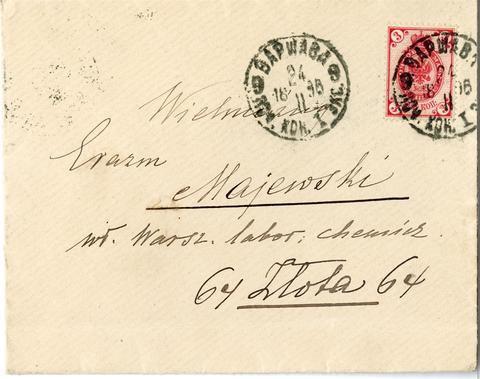 ВАРШАВА
24
18 96
II
КОН. I ЭКС.
3
КОП.
ВАРШАВА
24
96
II
КОН. I
Erazm
Majewski
wł. Warsz. labor. chemicz.
64 Złota 64